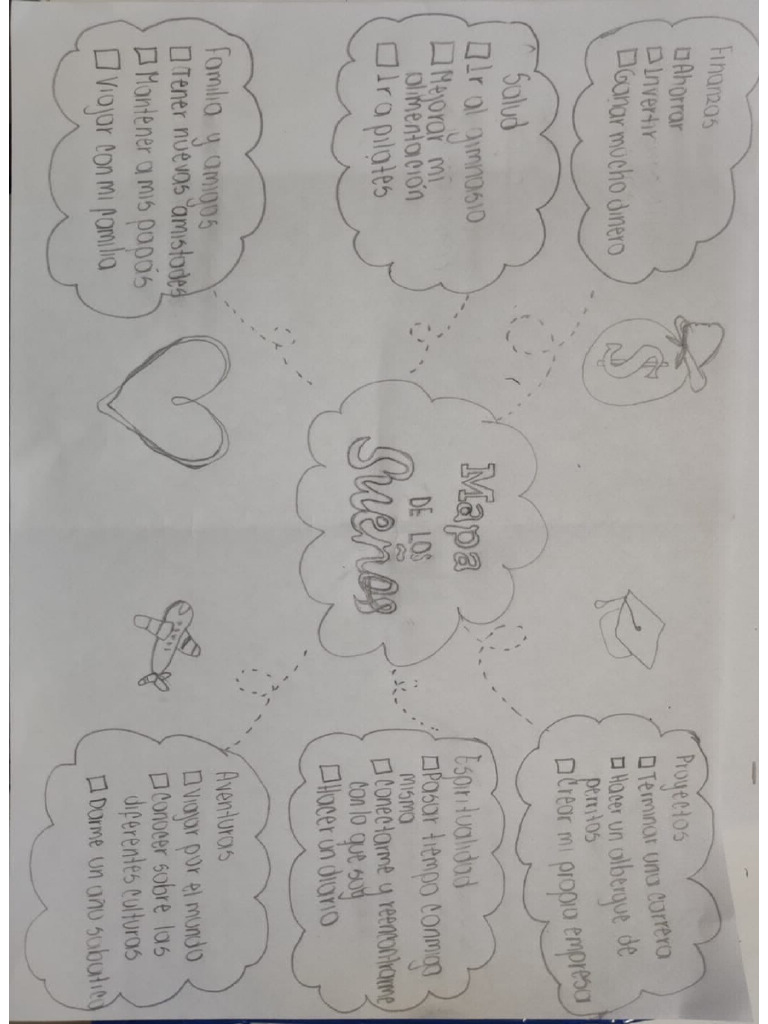 Mapa
DE LOS
Sueños
Finanzas
Ahorrar
Invertir
Ganar mucho dinero
Salud
Ir al gimnasio
Mejorar mi
alimentación
Ir a pilates
Familia y amigos
Tener nuevas amistades
Mantener a mis papás
Viajar con mi familia
$
Proyectos
Terminar una carrera
Hacer un albergue de
perritos
Crear mi propia empresa
Espiritualidad
Pasar tiempo conmigo
misma
Conectarme y reencontrarme
con lo que soy
Hacer un diario
Aventuras
Viajar por el mundo
Conocer sobre las
diferentes culturas
Darme un año sabático